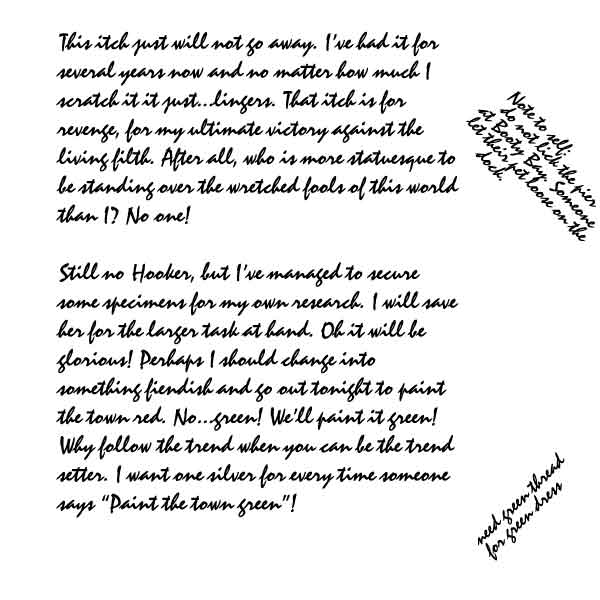 This itch just will not go away. I've had it for
several years now and no matter how much I
scratch it it just...lingers. That itch is for
revenge, for my ultimate victory against the
living filth. After all, who is more statuesque to
be standing over the wretched fools of this world
than I? No one!
Still no Hooker, but I've managed to secure
some specimens for my own research. I will save
her for the larger task at hand. Oh it will be
glorious! Perhaps I should change into
something fiendish and go out tonight to paint
the town red. No...green! We'll paint it green!
Why follow the trend when you can be the trend
setter. I want one silver for every time someone
says "Paint the town green"!
Note to self:
do not lick the pier
at Booty Bay. Someone
let their pet loose on the
dock.
need green thread
for green dress